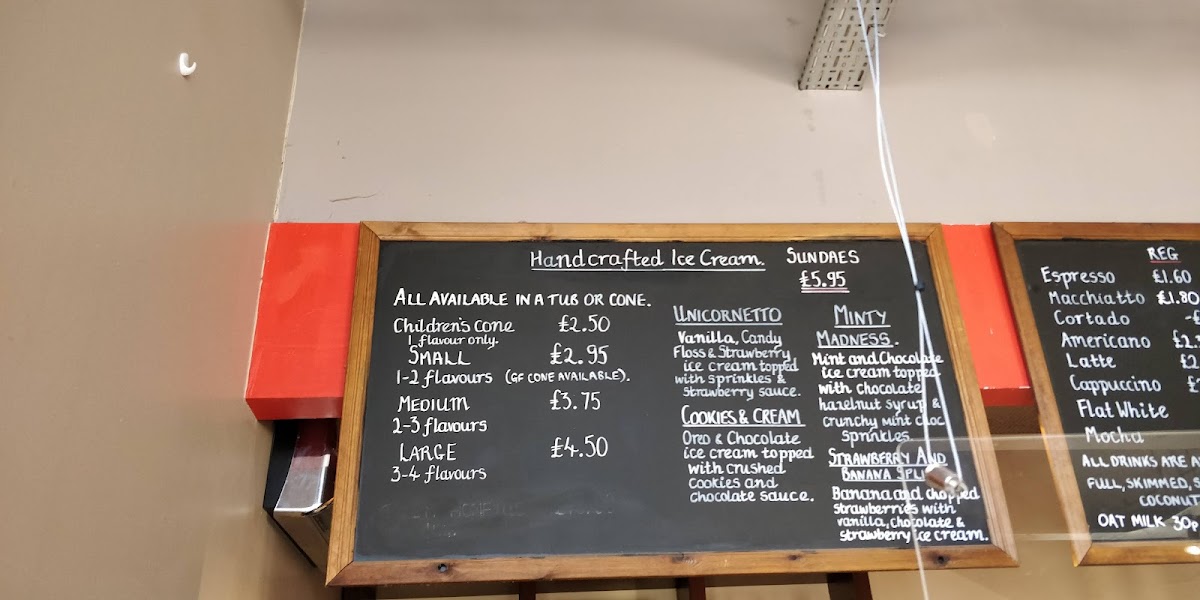 Handcrafted Ice Cream.
ALL AVAILABLE IN A TUB OR CONE.
Children's cone £2.50
1 flavour only.
SMALL £2.95
1-2 flavours (GF CONE AVAILABLE).
MEDIUM £3.75
2-3 flavours
LARGE £4.50
3-4 flavours
SUNDAES
£5.95
UNICORNETTO
Vanilla, Candy
Floss & Strawberry
ice cream topped
with sprinkles &
strawberry sauce.
COOKIES & CREAM
Oreo & Chocolate
ice cream topped
with crushed
cookies and
chocolate sauce.
MINTY
MADNESS.
Mint and Chocolate
ice cream topped
with chocolate
hazelnut syrup &
crunchy mint choc
sprinkles.
STRAWBERRY AND
BANANA SPLIT
Banana and chopped
strawberries with
vanilla, chocolate &
strawberry ice cream.
REG
Espresso £1.60
Macchiatto £1.80
Cortado
Americano
Latte
Cappuccino
Flat White
Mocha
ALL DRINKS ARE
FULL, SKIMMED,
COCONUT
OAT MILK 30p